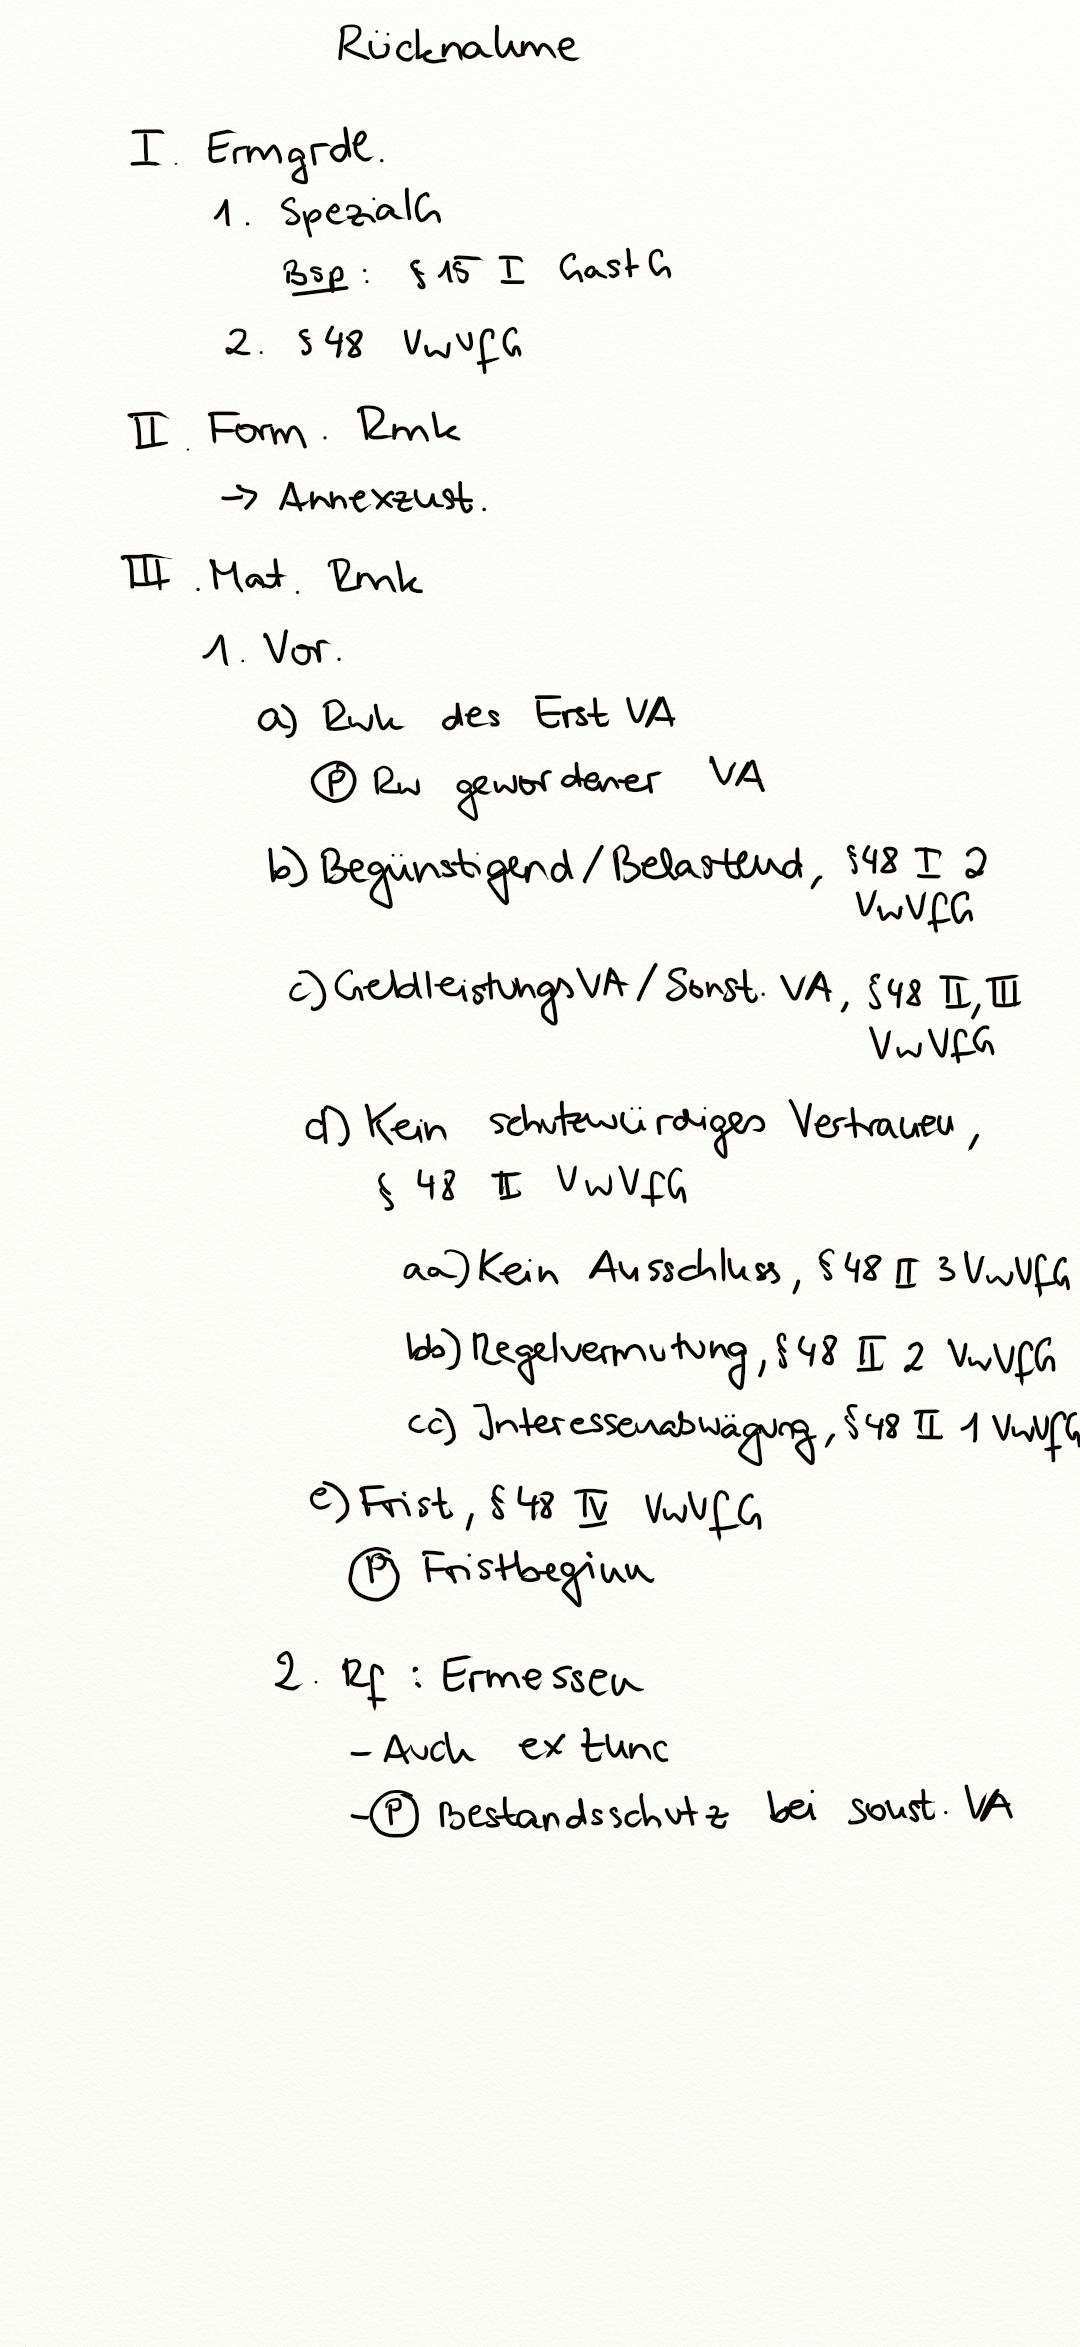 Rücknahme
I. Ermgrdl.
1. SpezialG
Bsp: § 15 I GastG
2. § 48 VwVfG
II. Form. Rmk
→ Annexzust.
III. Mat. Rmk
1. Vor.
a) Rwk des Erst VA
(P) Rw gewordener VA
b) Begünstigend/Belastend, § 48 I 2
VwVfG
c) GeldleistungsVA/Sonst. VA, § 48 II, III
VwVfG
d) Kein schutzwürdiges Vertrauen,
§ 48 II VwVfG
aa) Kein Ausschluss, § 48 II 3 VwVfG
bb) Regelvermutung, § 48 II 2 VwVfG
cc) Interessenabwägung, § 48 II 1 VwVfG
e) Frist, § 48 IV VwVfG
(P) Fristbeginn
2. Rf: Ermessen
- Auch ex tunc
- (P) Bestandsschutz bei sonst. VA